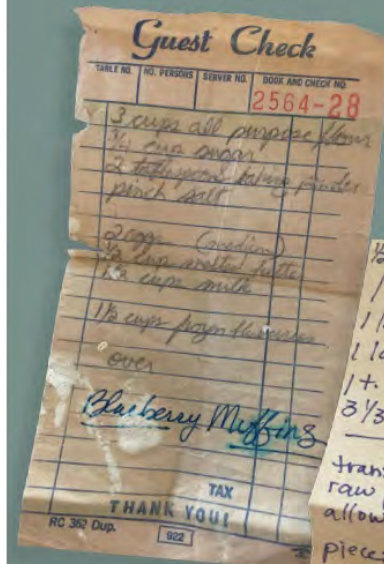 Guest Check
TABLE NO. NO. PERSONS SERVER NO. BOOK AND CHECK NO.
2564-28
3 cups all purpose flour
3/4 cup sugar
2 tablespoons baking powder
pinch salt
2 eggs (medium)
1/2 cup melted butter
cups milk
cups frozen blueberries
over
Blueberry Muffins
TAX
THANK YOU!
RC 352 Dup. 922
1 t.
3 1/3
tran
raw
allow
piece